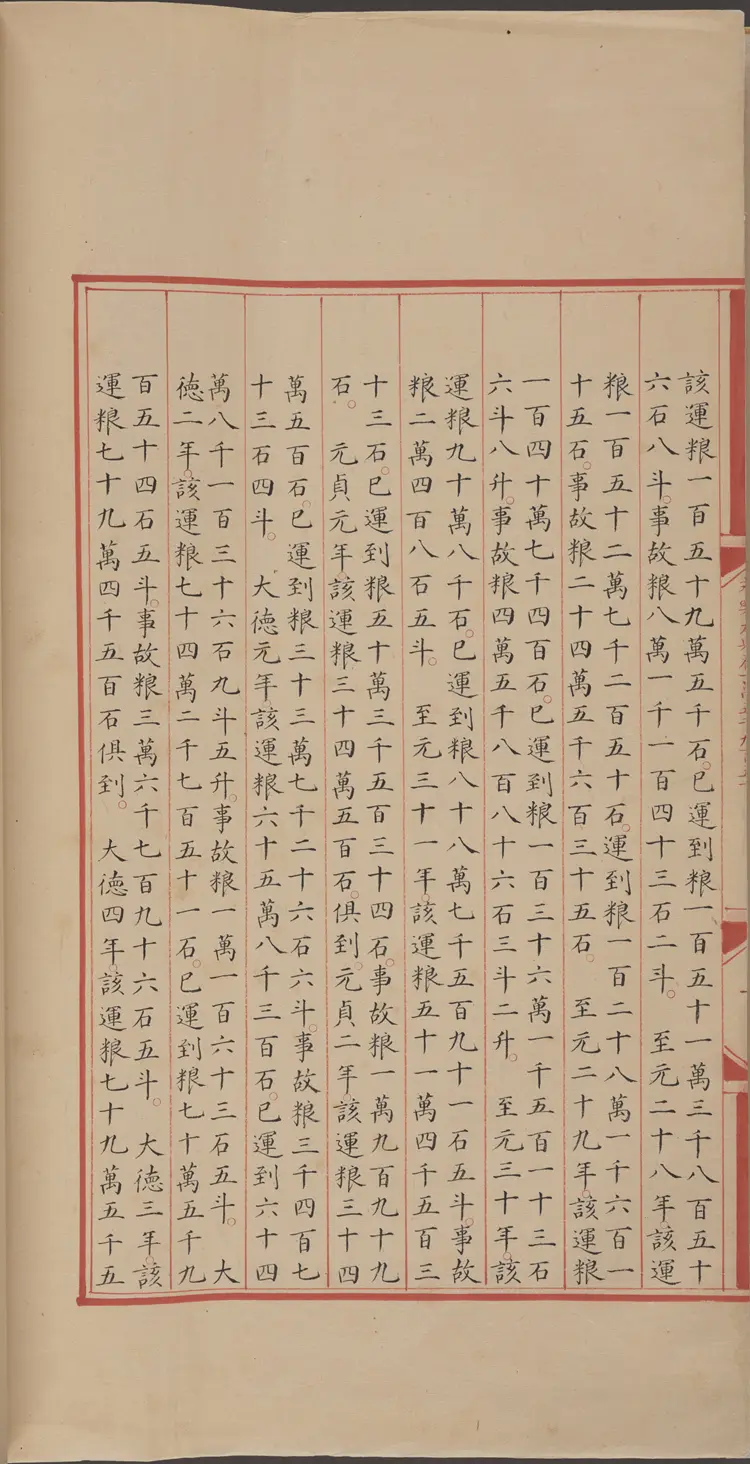 該運粮一百五十九萬五千石。已運到粮一百五十一萬三千八百五十
六石八斗。事故粮八萬一千一百四十三石二斗。 至元二十八年。該運
粮一百五十二萬七千二百五十石。運到粮一百二十八萬一千六百一
十五石。事故粮二十四萬五千六百三十五石。 至元二十九年。該運粮
一百四十萬七千四百石。已運到粮一百三十六萬一千五百一十三石
六斗八升。事故粮四萬五千八百八十六石三斗二升。 至元三十年。該
運粮九十萬八千石。已運到粮八十八萬七千五百九十一石五斗。事故
粮二萬四百八石五斗。 至元三十一年。該運粮五十一萬四千五百三
十三石。已運到粮五十萬三千五百三十四石。事故粮一萬九百九十九
石。 元貞元年該運粮三十四萬五百石。俱到。元貞二年。該運粮三十四
萬五百石。已運到粮三十三萬七千二十六石六斗。事故粮三千四百七
十三石四斗。 大徳元年該運粮六十五萬八千三百石。已運到六十四
萬八千一百三十六石九斗五升。事故粮一萬一百六十三石五斗。 大
徳二年。該運粮七十四萬二千七百五十一石。已運到粮七十萬五千九
百五十四石五斗。事故粮三萬六千七百九十六石五斗。 大徳三年。該
運粮七十九萬四千五百石俱到。 大徳四年該運粮七十九萬五千五